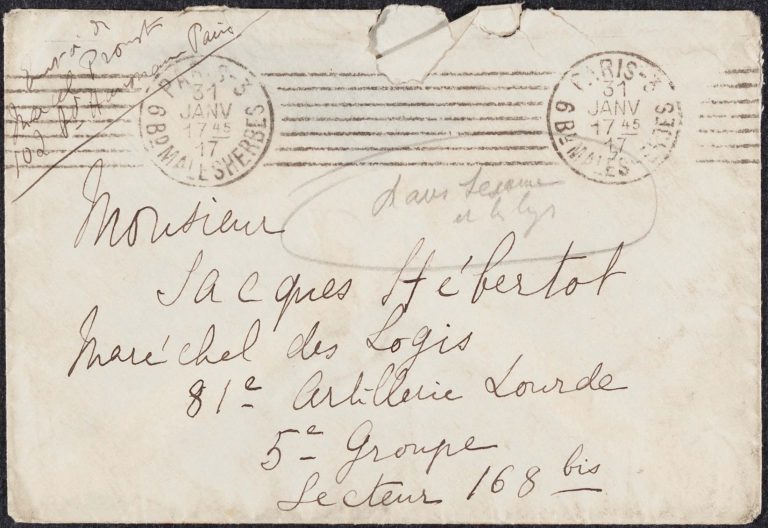 Envoi de
Marcel Proust
102 Bd Haussmann Paris
PARIS-3
31
JANV
17 45
17
6 Bd MALESHERBES
PARIS-3
31
JANV
17 45
17
6 Bd MALESHERBES
dans Sesame
et les lys
Monsieur
Jacques Hébertot
Maréchel des Logis
81e Artillerie Lourde
5e Groupe
Secteur 168 bis